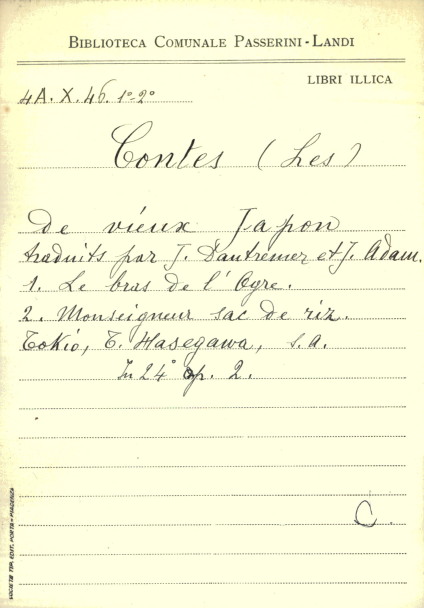 BIBLIOTECA COMUNALE PASSERINI-LANDI
LIBRI ILLICA
4A. X. 46. 1º-2º
Contes (Les)
De vieux Japon
traduits par J. Dautremer et J. Adam.
1. Le bras de l'Ogre.
2. Monseigneur sac de riz.
Tokio, T. Hasegawa, s.a.
In 24º op. 2.
C.
SOCIETÀ TIP. EDIT. PORTA - PIACENZA